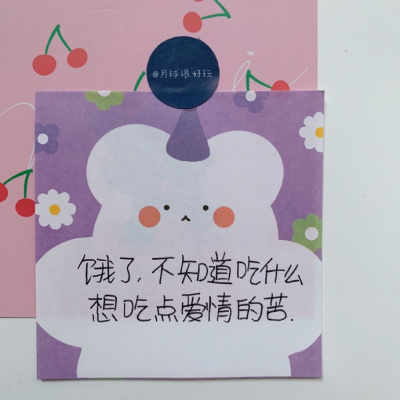 @月球很好玩
饿了，不知道吃什么
想吃点爱情的苦.